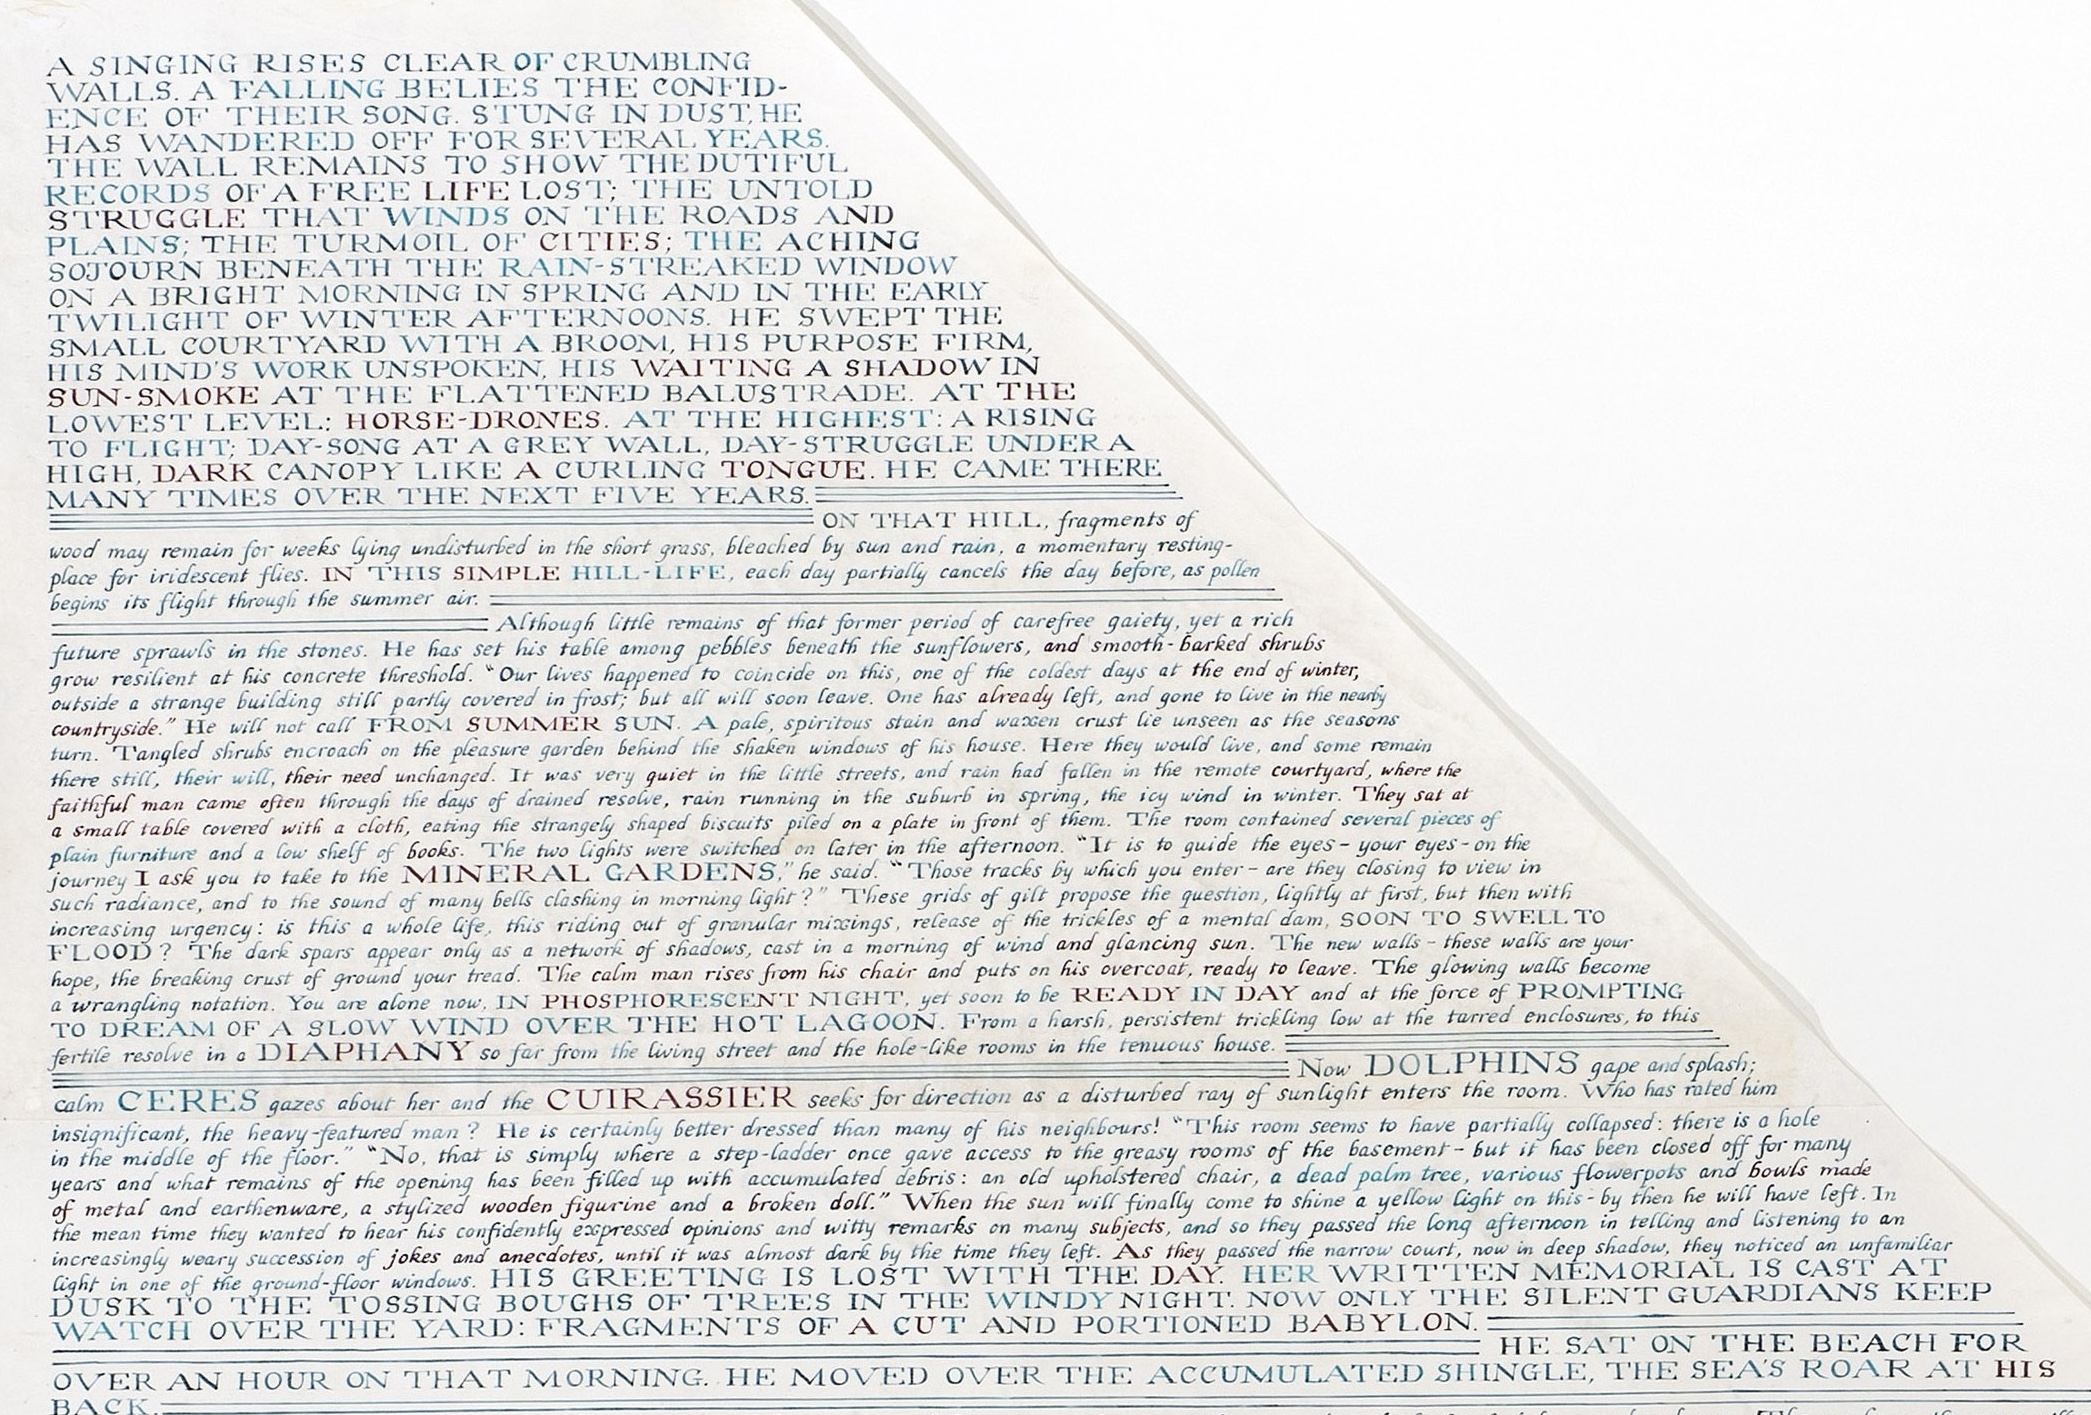 A SINGING RISES CLEAR OF CRUMBLING
WALLS. A FALLING BELIES THE CONFID-
ENCE OF THEIR SONG. STUNG IN DUST, HE
HAS WANDERED OFF FOR SEVERAL YEARS.
THE WALL REMAINS TO SHOW THE DUTIFUL
RECORDS OF A FREE LIFE LOST; THE UNTOLD
STRUGGLE THAT WINDS ON THE ROADS AND
PLAINS; THE TURMOIL OF CITIES; THE ACHING
SOJOURN BENEATH THE RAIN-STREAKED WINDOW
ON A BRIGHT MORNING IN SPRING AND IN THE EARLY
TWILIGHT OF WINTER AFTERNOONS. HE SWEPT THE
SMALL COURTYARD WITH A BROOM, HIS PURPOSE FIRM,
HIS MIND'S WORK UNSPOKEN, HIS WAITING A SHADOW IN
SUN-SMOKE AT THE FLATTENED BALUSTRADE. AT THE
LOWEST LEVEL: HORSE-DRONES. AT THE HIGHEST: A RISING
TO FLIGHT; DAY-SONG AT A GREY WALL, DAY-STRUGGLE UNDER A
HIGH, DARK CANOPY LIKE A CURLING TONGUE. HE CAME THERE
MANY TIMES OVER THE NEXT FIVE YEARS.
ON THAT HILL, fragments of
wood may remain for weeks lying undisturbed in the short grass, bleached by sun and rain, a momentary resting-
place for iridescent flies. IN THIS SIMPLE HILL-LIFE, each day partially cancels the day before, as pollen
begins its flight through the summer air.
Although little remains of that former period of carefree gaiety, yet a rich
future sprawls in the stones. He has set his table among pebbles beneath the sunflowers, and smooth-barked shrubs
grow resilient at his concrete threshold. "Our lives happened to coincide on this, one of the coldest days at the end of winter,
outside a strange building still partly covered in frost; but all will soon leave. One has already left, and gone to live in the nearby
countryside." He will not call FROM SUMMER SUN. A pale, spiritous stain and waxen crust lie unseen as the seasons
turn. Tangled shrubs encroach on the pleasure garden behind the shaken windows of his house. Here they would live, and some remain
there still, their will, their need unchanged. It was very quiet in the little streets, and rain had fallen in the remote courtyard, where the
faithful man came often through the days of drained resolve, rain running in the suburb in spring, the icy wind in winter. They sat at
a small table covered with a cloth, eating the strangely shaped biscuits piled on a plate in front of them. The room contained several pieces of
plain furniture and a low shelf of books. The two lights were switched on later in the afternoon. "It is to guide the eyes – your eyes – on the
journey I ask you to take to the MINERAL GARDENS," he said. "Those tracks by which you enter – are they closing to view in
such radiance, and to the sound of many bells clashing in morning light?" These grids of gilt propose the question, lightly at first, but then with
increasing urgency: is this a whole life, this riding out of granular mixings, release of the trickles of a mental dam, SOON TO SWELL TO
FLOOD? The dark spars appear only as a network of shadows, cast in a morning of wind and glancing sun. The new walls – these walls are your
hope, the breaking crust of ground your tread. The calm man rises from his chair and puts on his overcoat, ready to leave. The glowing walls become
a wrangling notation. You are alone now, IN PHOSPHORESCENT NIGHT, yet soon to be READY IN DAY and at the force of PROMPTING
TO DREAM OF A SLOW WIND OVER THE HOT LAGOON. From a harsh, persistent trickling low at the tarred enclosures, to this
fertile resolve in a DIAPHANY so far from the living street and the hole-like rooms in the tenuous house.
Now DOLPHINS gape and splash;
calm CERES gazes about her and the CUIRASSIER seeks for direction as a disturbed ray of sunlight enters the room. Who has rated him
insignificant, the heavy-featured man? He is certainly better dressed than many of his neighbours! "This room seems to have partially collapsed: there is a hole
in the middle of the floor." "No, that is simply where a step-ladder once gave access to the greasy rooms of the basement – but it has been closed off for many
years and what remains of the opening has been filled up with accumulated debris: an old upholstered chair, a dead palm tree, various flowerpots and bowls made
of metal and earthenware, a stylized wooden figurine and a broken doll." When the sun will finally come to shine a yellow light on this – by then he will have left. In
the mean time they wanted to hear his confidently expressed opinions and witty remarks on many subjects, and so they passed the long afternoon in telling and listening to an
increasingly weary succession of jokes and anecdotes, until it was almost dark by the time they left. As they passed the narrow court, now in deep shadow, they noticed an unfamiliar
light in one of the ground-floor windows. HIS GREETING IS LOST WITH THE DAY. HER WRITTEN MEMORIAL IS CAST AT
DUSK TO THE TOSSING BOUGHS OF TREES IN THE WINDY NIGHT. NOW ONLY THE SILENT GUARDIANS KEEP
WATCH OVER THE YARD: FRAGMENTS OF A CUT AND PORTIONED BABYLON.
HE SAT ON THE BEACH FOR
OVER AN HOUR ON THAT MORNING. HE MOVED OVER THE ACCUMULATED SHINGLE, THE SEA'S ROAR AT HIS
BACK.